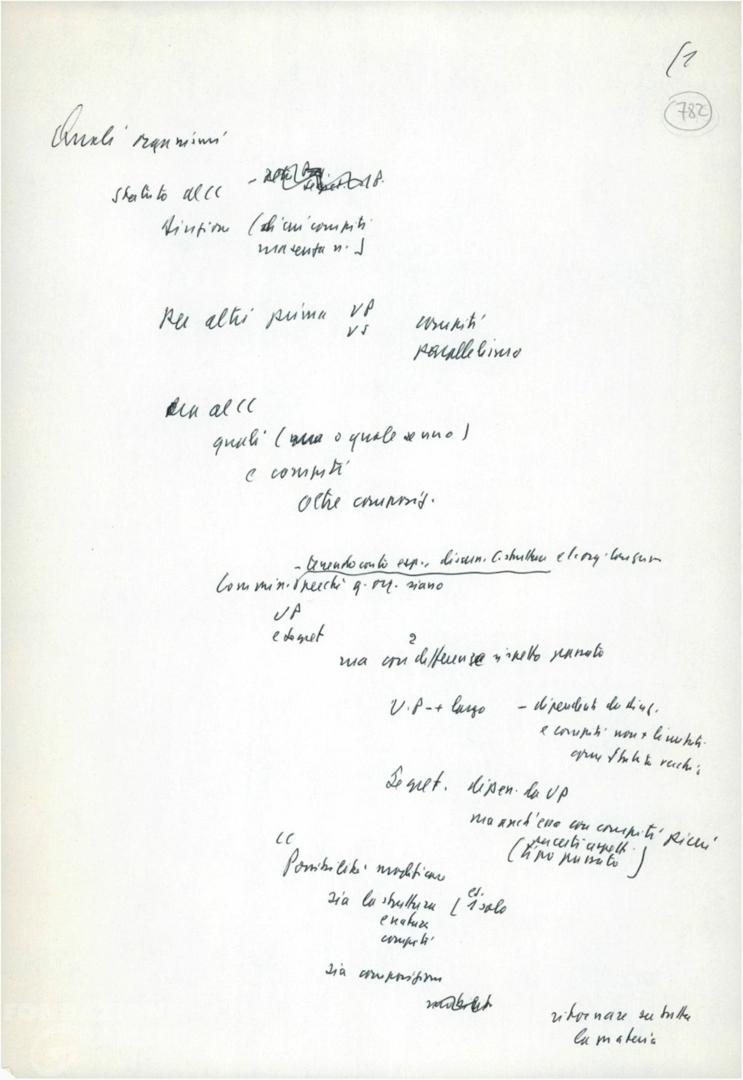 (1
782
Quali organismi
Statuto al CC -
funzione (di cui compiti
ma senta n.)
Per altri prima VP compiti
VS parallelismo
Ora al CC
quali (una o quale se uno)
e compiti
oltre composiz.
- tenendo conto esp. discus. c. struttura e
Commin. specchi q. org. siano
UP
e Segret
2
ma con differenze rispetto passato
U.P - + largo - dipendenti da
e compiti non + limitati
come Statuto vecchi
Segret. dipen. da UP
ma anch'essa con compiti
(tipo passato)
CC
Possibilità modificare
sia la struttura (es. 1 solo
e natura
compiti
sia composizione
ritornare su tutta
la materia